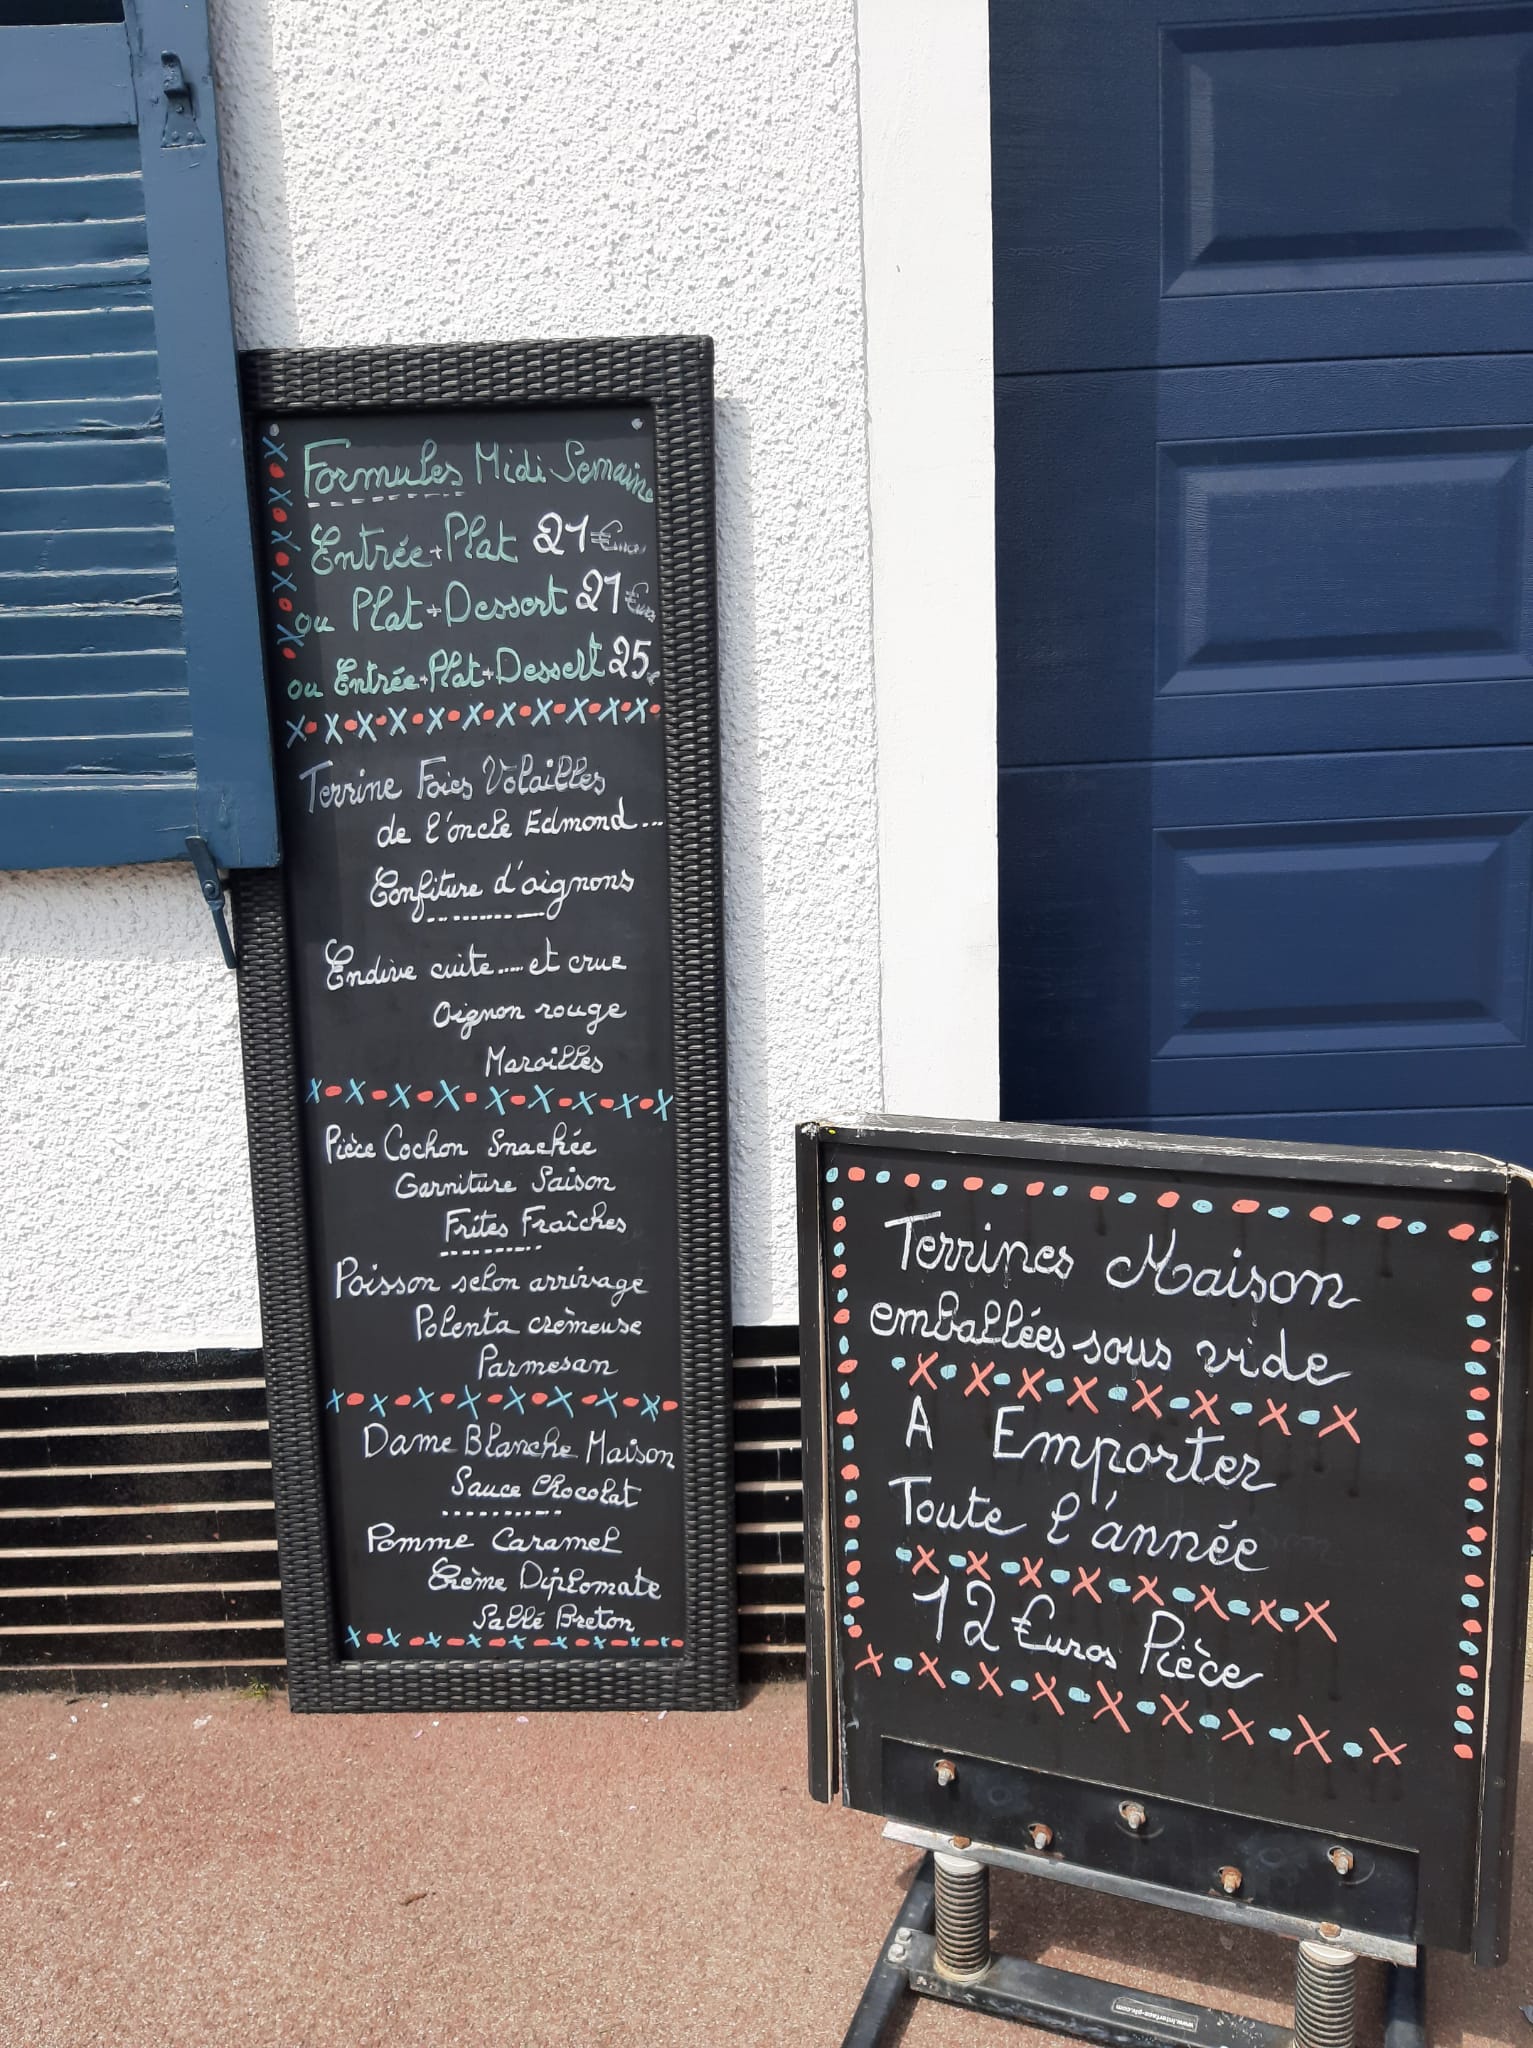 Formules Midi Semaine
Entrée + Plat 21 €uros
ou Plat + Dessert 21 €uros
ou Entrée + Plat + Dessert 25 €
Terrine Foies Volailles
de l'oncle Edmond...
Confiture d'oignons
Endive cuite..... et crue
Oignon rouge
Maroilles
Pièce Cochon Snackée
Garniture Saison
Frites Fraîches
Poisson selon arrivage
Polenta crèmeuse
Parmesan
Dame Blanche Maison
Sauce Chocolat
Pomme Caramel
Crème Diplomate
Sablé Breton
Terrines Maison
emballées sous vide
A Emporter
Toute l'année
12 €uros Pièce